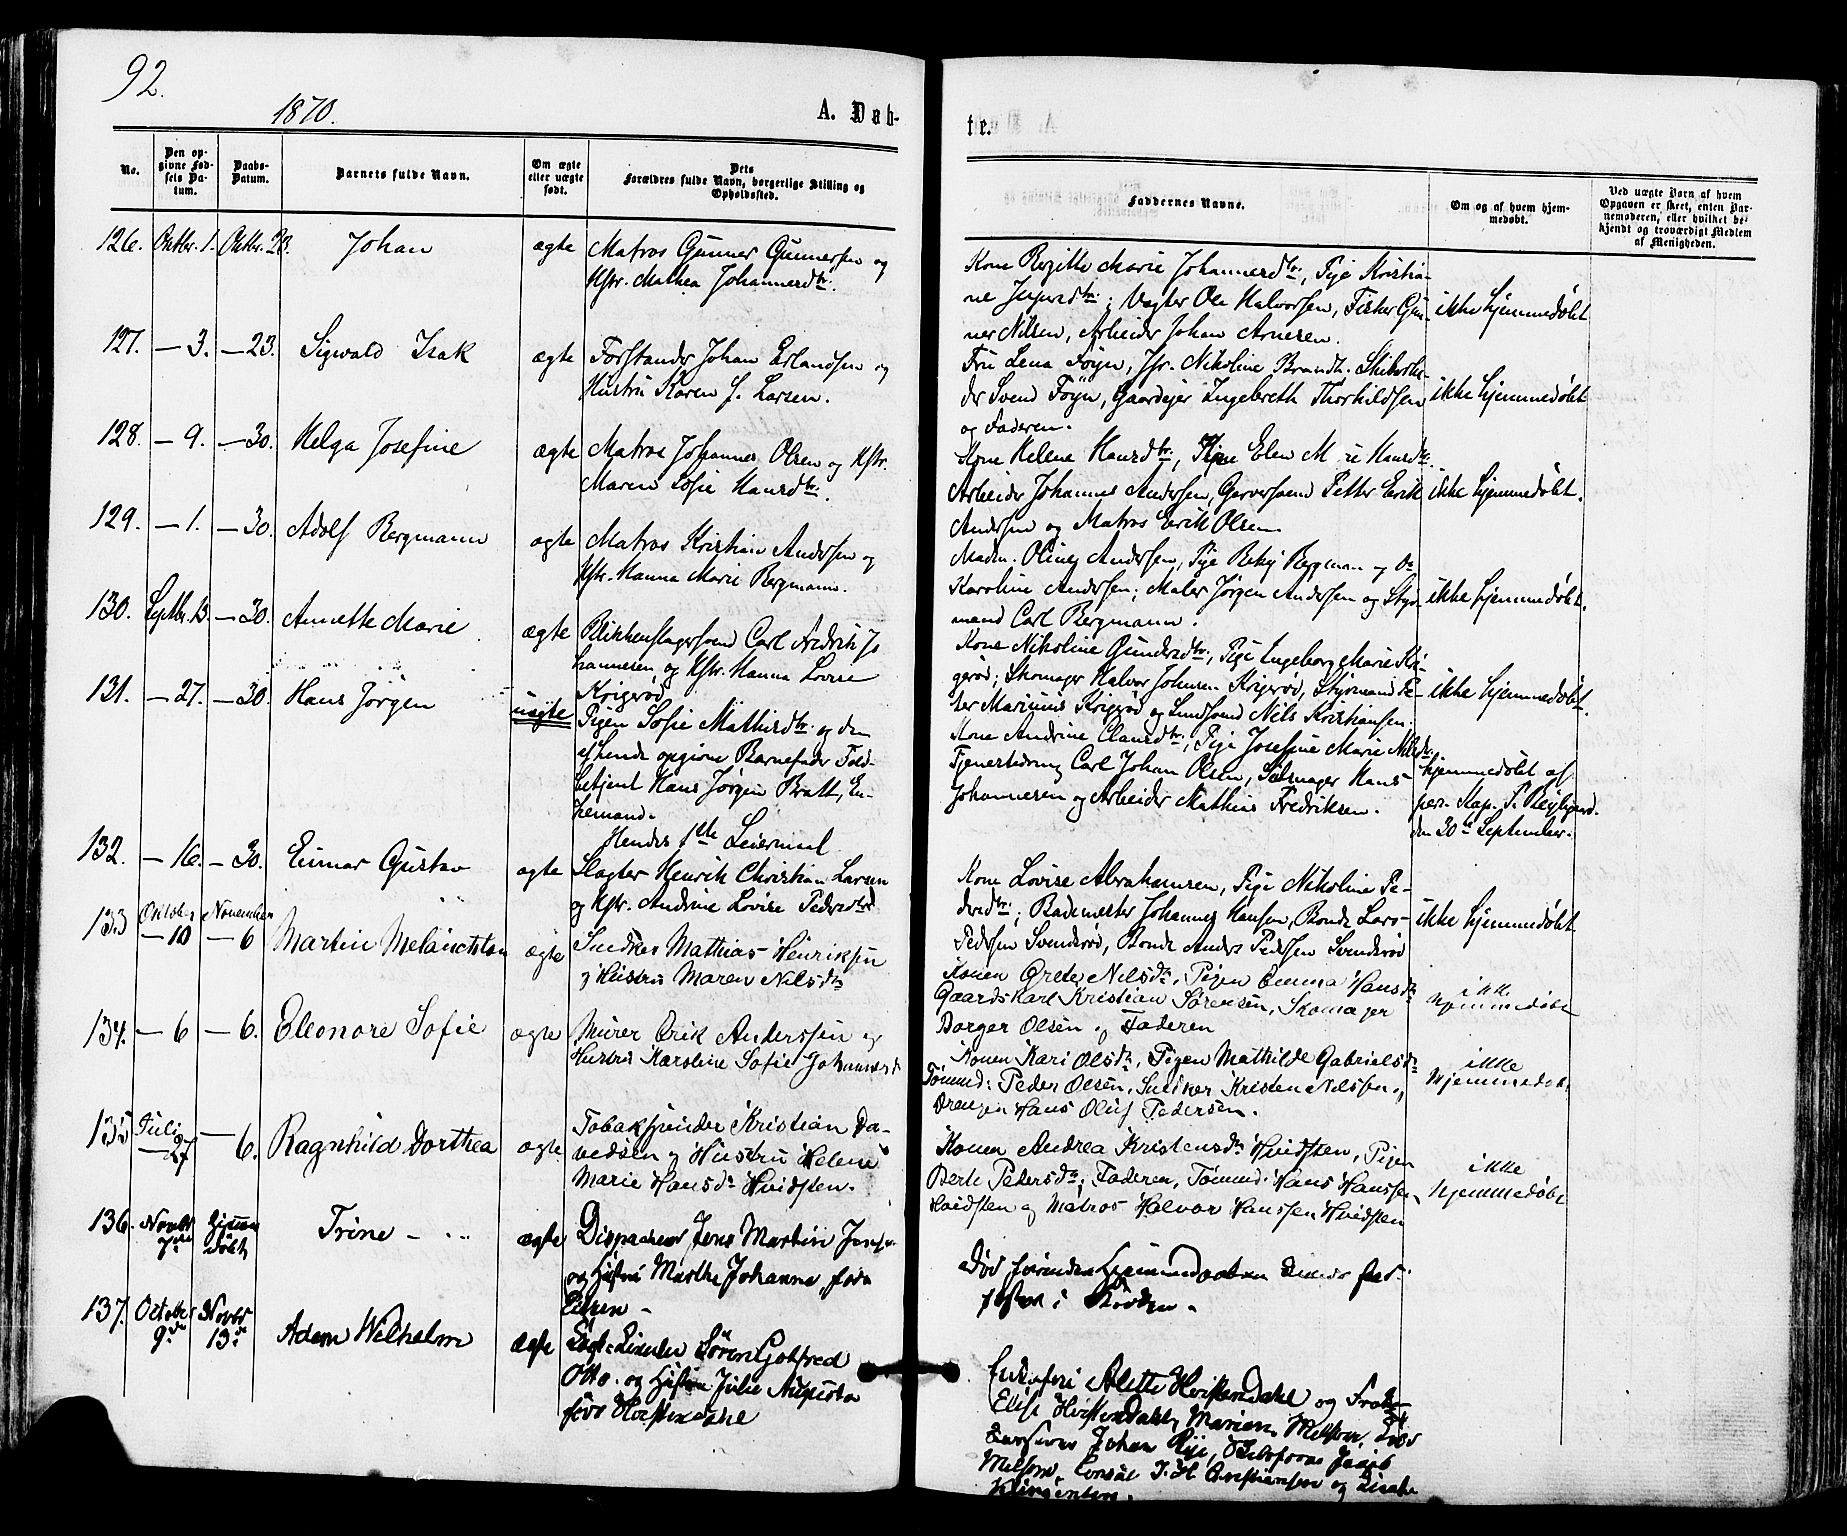 92.
1870.
A. Døb-
te.
No.
Den op-
givne Fød-
sels Da-
tum.
Daabs-
Datum.
Barnets fulde Navn.
Om ægte
eller uægte
født.
Dets
Forældres fulde Navn, borgerlige Stilling og
Opholdssted.
Faddernes Navne.
Om og af hvem hjem-
medøbt.
Ved uægte Børn af hvem
Opgaven er skeet, enten Bar-
nemoderen, eller hvilket be-
kjendt og troværdigt Medlem
af Menigheden.
126. Oktbr. 1. Oktbr. 23. Johan ægte Matros Gunner Gunnersen og
Hstr. Mathea Johannesdtr.
Kone Regitte Marie Johannesdtr, Pige Kristia-
ne Jespersdtr; Vægter Ole Halvorsen, Fisker Gun-
ner Nilsen, Arbeider Johan Arnesen.
ikke hjemmedøbt
127. — 3. — 23. Sigwald Isak ægte Forstander Johan Erlandsen og
Hustru Karen J. Larsen.
Fru Lena Føyn, Jfr. Nikoline Brandt, Skibsrhe-
der Svend Føyn, Gaardejer Ingebreth Thorkildsen
og Faderen.
ikke hjemmedøbt
128. — 9. — 30. Helga Josefine ægte Matros Johannes Olsen og Hstr.
Maren Sofie Hansdtr.
Kone Helene Hansdtr, Pige Elen M Hansdtr.
Arbeider Johannes Andersen, Garversvend Petter Erik
Andersen og Matros Erik Olsen
ikke hjemmedøbt.
129. — 1. — 30. Adolf Bergmann ægte Matros Kristian Andersen og
Hstr. Hanna Marie Bergmann.
Madm. Oline Andersen, Pige Betsy Bergman og
Karoline Andersen; Maler Jørgen Andersen og Styr-
mand Carl Bergmann.
ikke hjemmedøbt.
130. Septbr. 13. — 30. Annette Marie ægte Blikkenslagersvend Carl Fredrik Jo
hannesen og Hstr. Hanna Lovise
Krigerød
Kone Nikoline Gundersdtr, Pige Ingeborg Marie Kri-
gerød; Skomager Halvor Johnsen Krigerød, Styrmand Pe-
ter Marinius Krigerød og Smedsvend Nils Kristiansen.
ikke hjemmedøbt.
131. — 27. — 30. Hans Jørgen uægte Pigen Sofie Mathisdtr. og den
af hende opgivne Barnefader Told-
betjent Hans Jørgen Bratt, En-
kemand.
Hendes 1ste Leiermaal
Kone Andrine Clausdtr, Pige Josefine Marie Nilsdtr.
Tjenestedreng Carl Johan Olsen, Salmager Hans
Johannesen og Arbeider Mathias Fredriksen.
hjemmedøbt af
pers. Kap.
den 30te September.
132. — 16. — 30. Einar Gustav ægte Slagter Henrik Christian Larsen
og Hstr. Andrine Lovise Pedersdtr
Kone Lovise Abrahamsen, Pige Nikoline Pe-
dersdtr; Bademester Johannes Hansen, Bonde Lars
Pedersen Svenderød, Bonde Anders Pedersen Svenderød
ikke hjemmedøbt
133 Oktober — 10 November — 6 Martin Melanchton ægte Snedker Mathias Henriksen
og Hustru Maren Nilsdtr
Konen Grete Nilsdtr, Pigen Emma Hansdtr
Gaardskarl Kristian Sørensen, Skomager
Borger Olsen og Faderen
ikke
hjemmedøbt
134. — 6 — 6. Eleonore Sofie ægte Murer Erik Anderssen og
Hustru Karoline Sofie Johannesd
Konen Kari Olsdtr, Pigen Mathilde Gabrielsdtr
Tømmd: Peder Olsen, Snedker Kristen Nilssen,
Drengen Hans Oluf Pedersen.
ikke
hjemmedøbt
135 Juli 27 — 6. Ragnhild Dorthea ægte Tobakspinder Kristian Da-
vidsen og Hustru Helene
Marie Hansdtr Hvidsten.
Konen Andrea Kristensdtr Hvidsten, Pigen
Berte Pedersdtr; Faderen, Tømmd. Hans Hanssen
Hvidsten og Matros Halvor Hanssen Hvidsten
ikke
hjemmedøbt
136. Novbr 7de Hjemme
døbt Trine ægte Dispacheur Jens Martin
og Hustru Marthe Johanne, født
Død førinden Hjemmedaaben
i Kirken.
137. October 9de Novbr 13de Adam Wilhelm ægte Søren Gotfred
Otto. og Hustru Julie Augusta
født Hvistendahl
Alette Hvistendahl og Frøken
Elise Hvistendahl, Marian Melsom,
Johan Rye, Jacob
Melsom, Consul J. H. Christiansen og